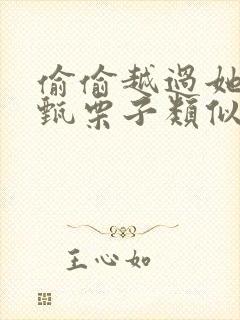 偷偷越過她
甄栗子類似
王心如